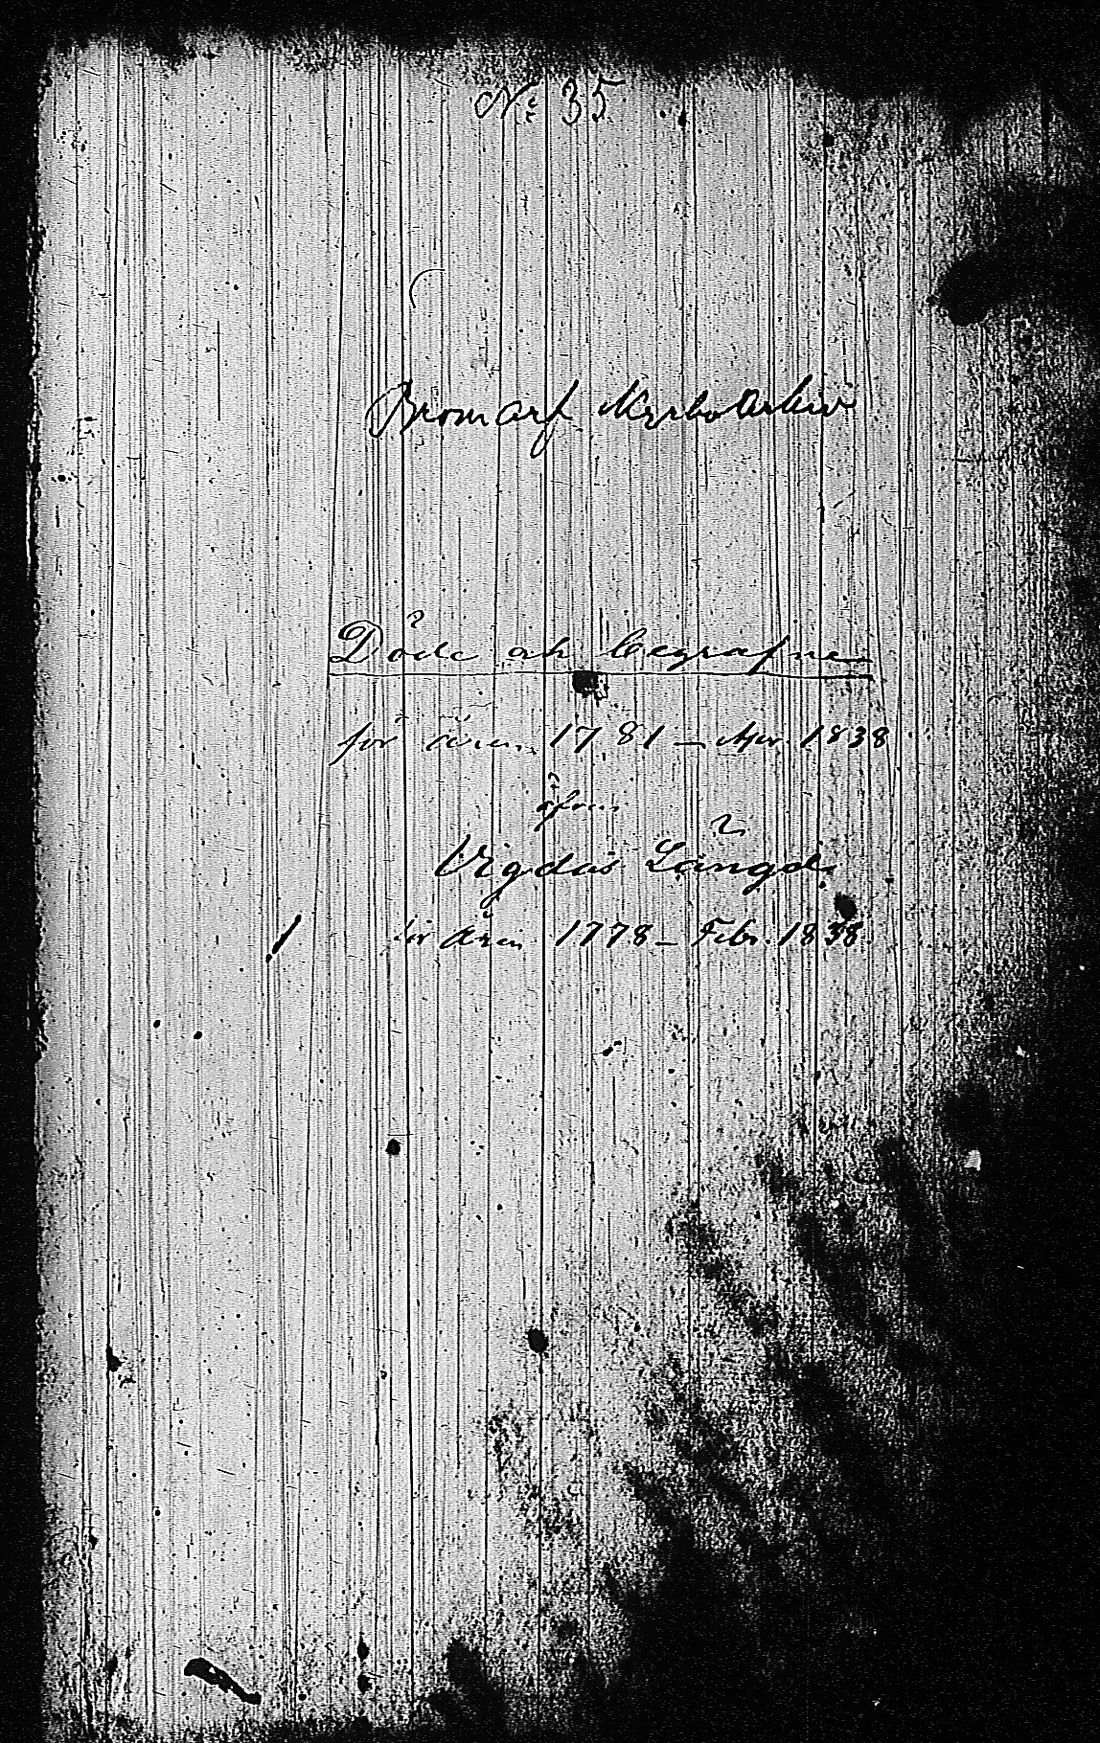 No 35
Bromarf Kyrko Arkiv
Döde och begrafne
för åren 1781 – Apr 1838
äfven
Vigdas Längd
för Åren 1778 – Febr. 1838